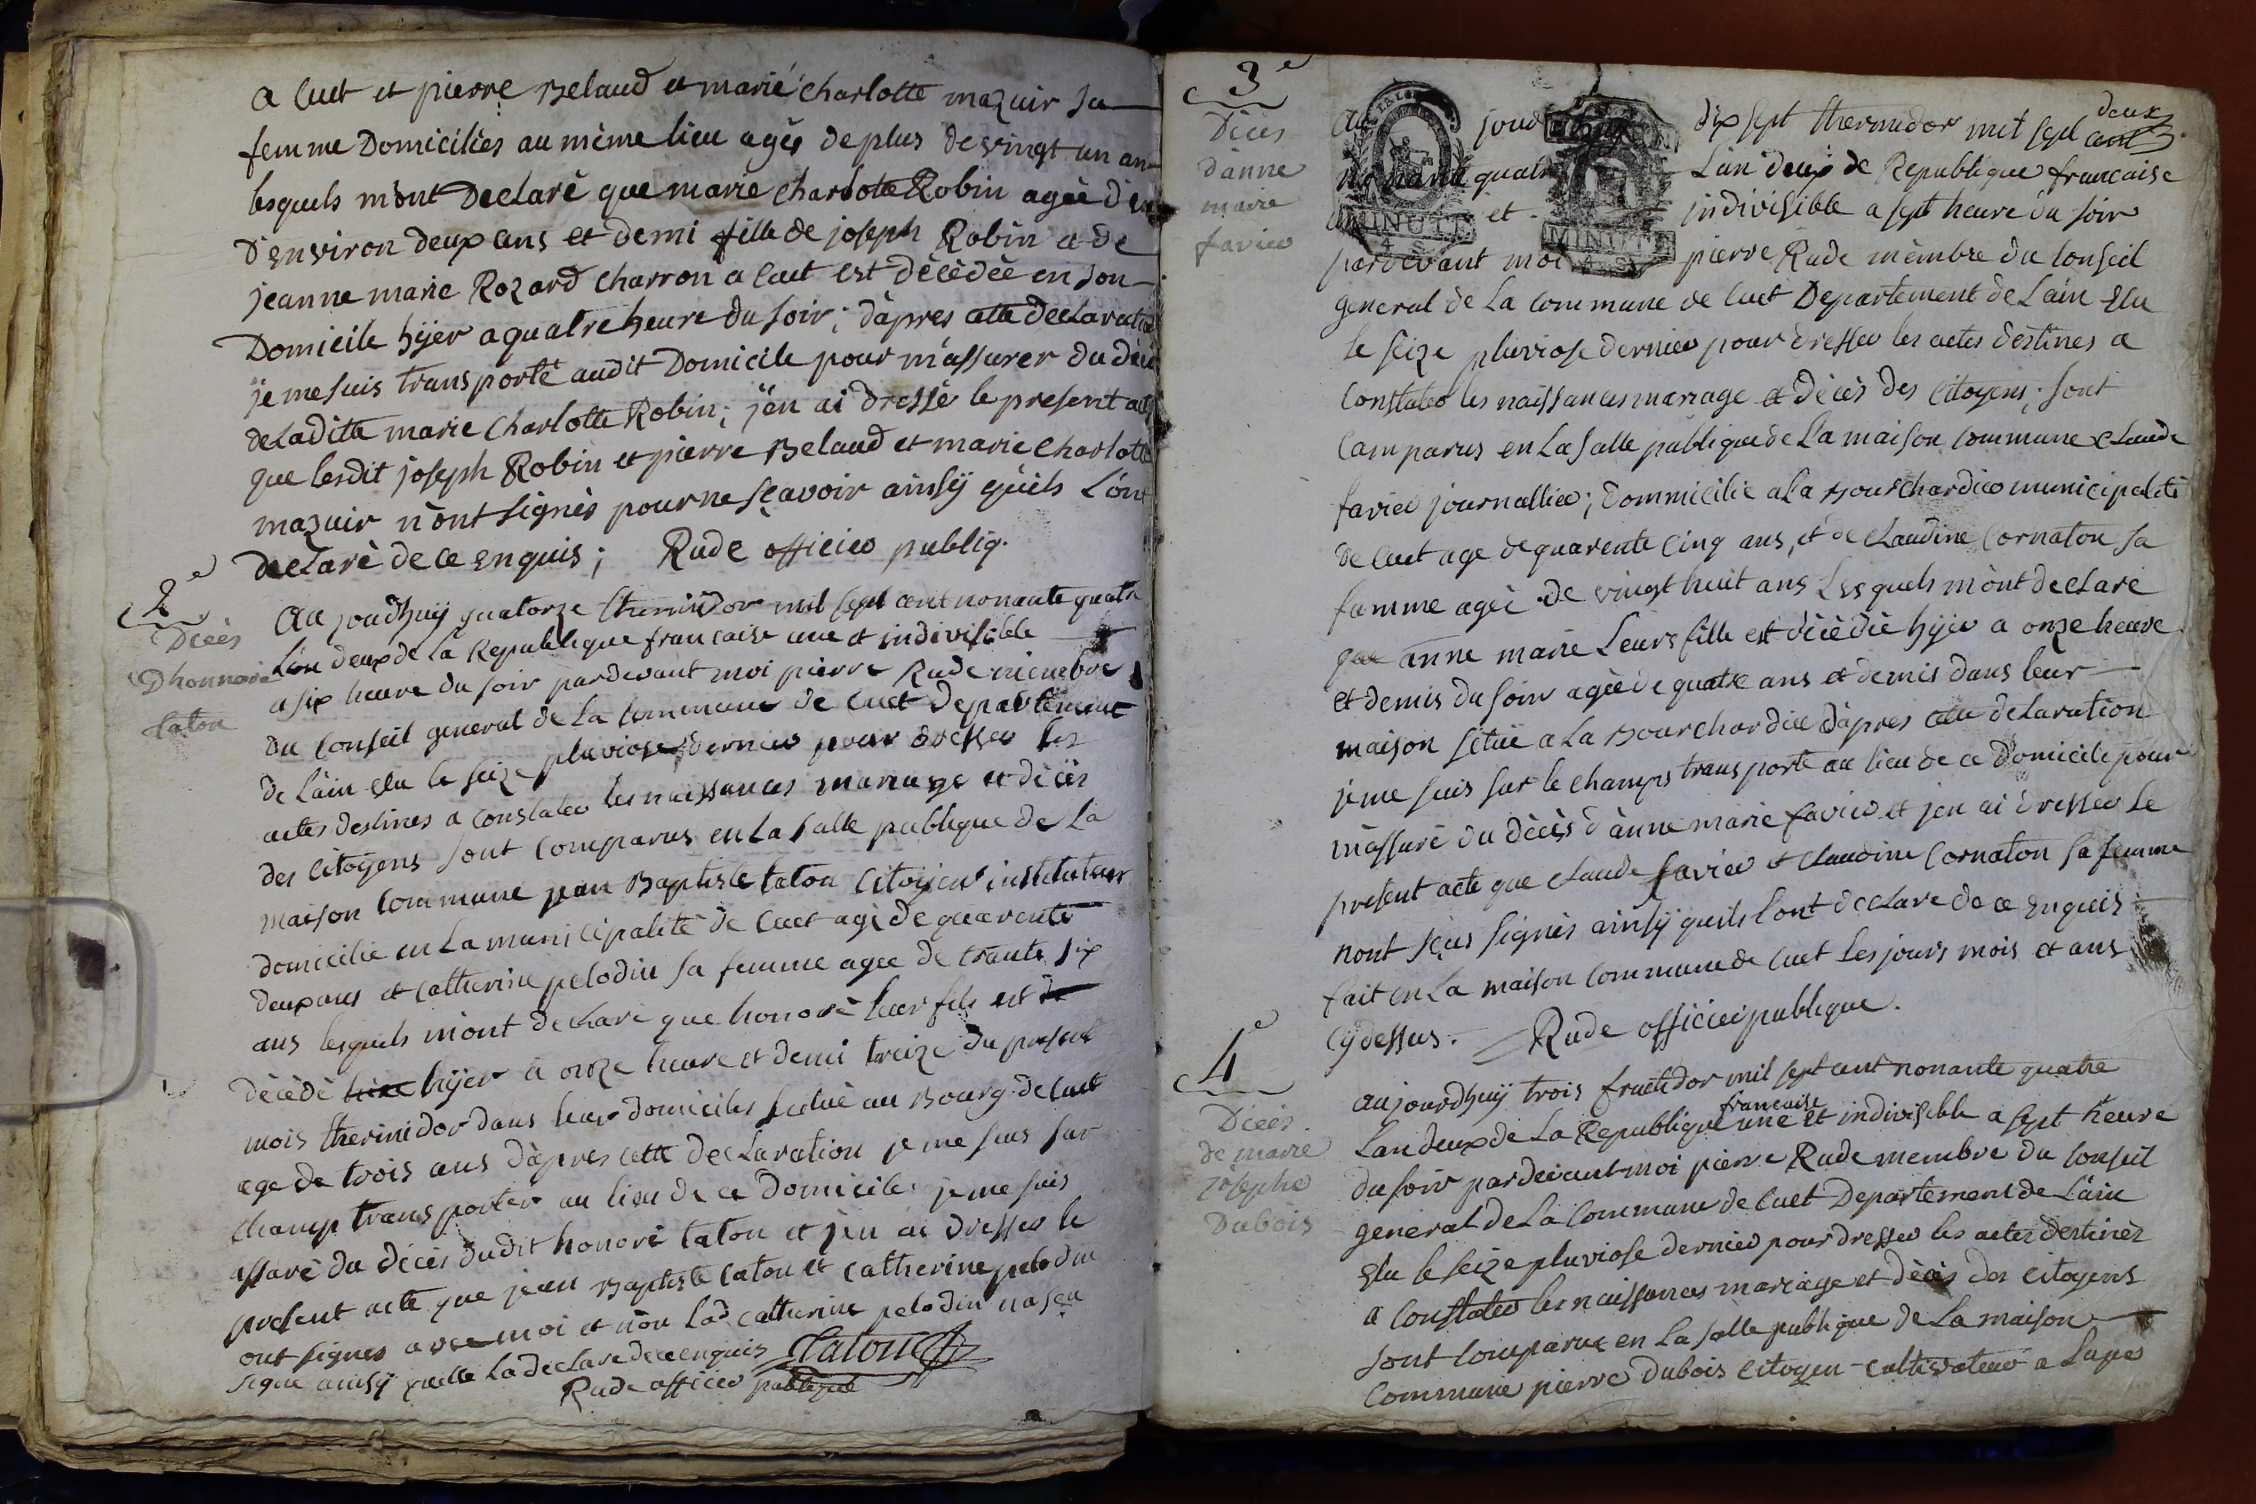 a Cuet et pierre Belaud et marie charlotte mazuir sa
femme Domiciliès au mème lieu agés de plus de vingt un an
lesquels m'ont Declaré que marie charlotte Robin agée d'en
d'environ deux ans et demi fille de joseph Robin a de
jeanne marie Rozard charron a Cuet est dècèdèe en son
Domicile hÿer a quatre heure du soir; d'apres cette declaration
je me suis transporté audit Domicile pour m'assurer du décè
de Ladite marie charlotte Robin; j'en ai dressé le present acte
que lesdit joseph Robin et pierre Belaud et marie charlotte
mazuir n'ont signès pour ne sçavoir ainsÿ qu'ils L'ont
declarè de ce enquis; Rude officier publiq.
2e
Dècès
D'honnoré
Caton
Au joudhuÿ quatorze thermidor mil sept cent nonante quatre
L'an deux de La Republique francaise une et indivisible
a six heure du soir pardevant moi pierre Rude membre
du Conseil general de La commune de Cuet departement
de L'ain elu le seize pluviose dernier pour dresser les
actes destines a constater les naissances mariage et dècès
des citoÿens sont comparus en La salle publique de La
maison Commune jean Baptiste Caton Citoÿen instituteur
domicilie en La municipalité de Cuet agé de quarente
deux ans et catherine pelodin sa femme agee de trante six
ans lesquels m'ont declaré que honoré leur fils est de
dècèdè hier hÿer à onze heure et demi treize du present
mois thermidor dans leur domiciles scituè au Bourg de Cuet
age de trois ans d'apres cette declaration je me suis sur
champ transporter au lieu de ce domicile je me suis
assuré du dècès dudit honoré Caton et j'en ai dresser le
present acte que jean Baptiste Caton et catherine pelodin
ont signes avec moi et non Lad catherine pelodin na sçu
signe ainsÿ quelle La declare de ce enquis Caton
Rude officier publique
3e
Dècès
d'anne
marie
favier
Au joud dix sept thermidor mil sept cent deux
nonante quatre L'an deux de Republique francaise
et indivisible a sept heure du soir
pardevant moi pierre Rude mèmbre du Conseil
general de La Commune de Cuet Departement de L'ain Elu
le seize pluviose dernier pour dresser les actes destines a
Constater les naissances mariage et dècès des Citoÿens; sont
Comparus en La salle publique de La maison Commune Claude
favier journallier; Dommicilie a La Bourchardier municipalité
de Cuet age de quarente Cinq ans, et de Claudine Cornaton sa
famme agèe de vingt huit ans Lesquels m'ont declare
que anne marie Leurs fille est dècèdèe hÿer a onze heure
et demis du soir agèe de quatre ans et demis dans leur
maison situè a La Bourchardier d'apres cette declaration
je me suis sur le champs transporte au lieu de ce Domicile pour
m'assuré du dècès d'anne marie favier et jen ai dresser Le
present acte que Claude favier et Claudine Cornaton sa femme
nont sçus signès ainsÿ quils Lont declare de ce enquis
fait en La maison Commune de Cuet Les jours mois et ans
Cÿ dessus. Rude officier publique.
4e
Dècès
de marie
Josephe
Dubois
Aujourdhuÿ trois fructidor mil sept cent nonante quatre
L'an deux de La Republique francaise une et indivisible a sept heure
du soir pardevant moi pierre Rude membre du Conseil
general de La Commune de Cuet Departement de L'ain
Elu le seize pluviose dernier pour dresser les actes destinès
a Constater les naissances mariage et dècès des citoÿens
sont Comparus en La salle publique de La maison
Commune pierre Dubois Citoÿen cultivateur a Lape